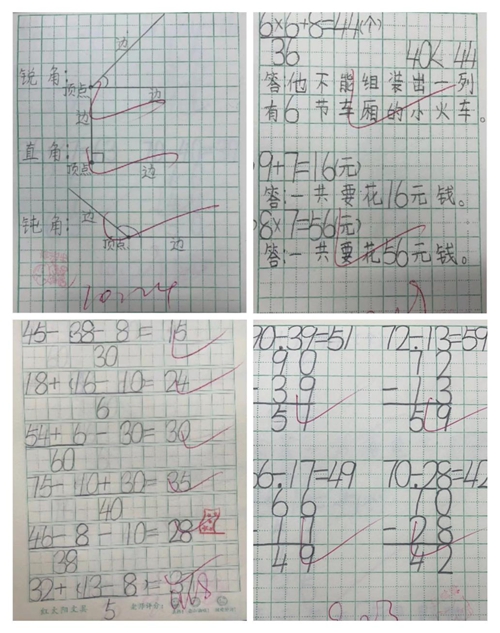 边
锐角:
顶点
边
边
直角:
顶点
边
钝角:
边
顶点
边
10.24
6×6+8=44(个)
36
40< 44
答:他不能组装出一列
有6节车厢的小火车。
9+7=16(元)
答:一共要花16元钱。
8×7=56(元)
答:一共要花56元钱。
45-38-8=15
30
18+(16-10=24
6
54+6-30=30
60
75-(10+30=35
40
46-8-10=28
38
32+(13-8)=
5
90-39=51
72-13=59
90
72
-39
-13
51
59
66-17=49
70-28=42
66
70
-17
-28
49
42